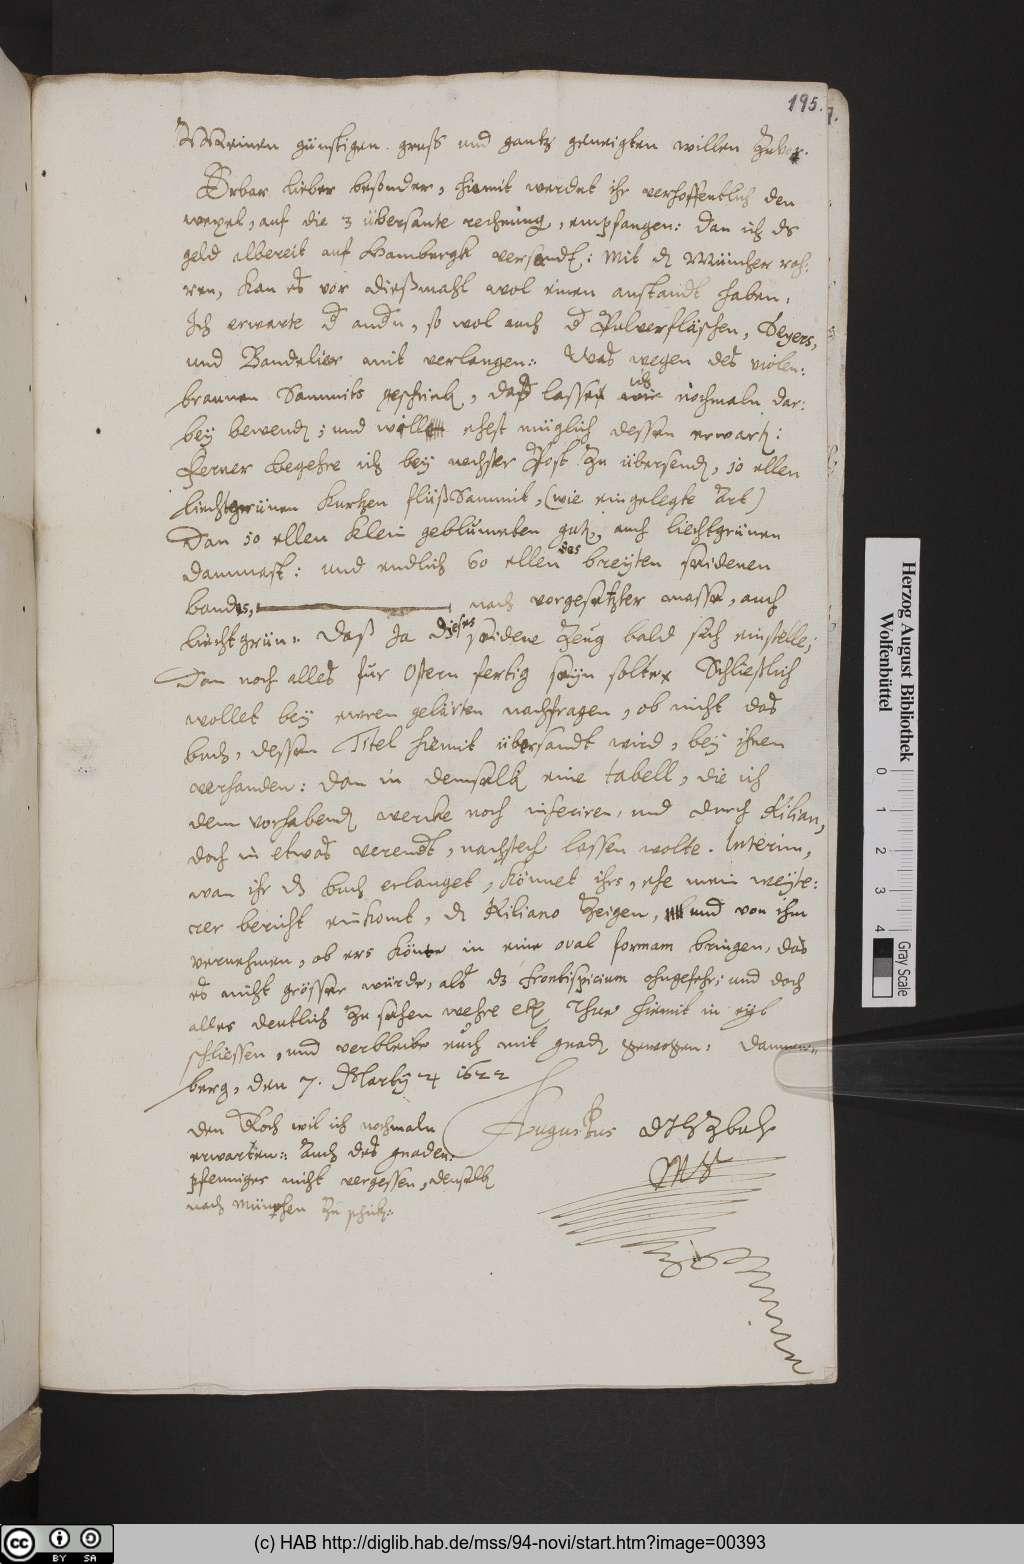 195.
Meinen günstigen gruß und gantz geneigten willen zuvor.
Erbar lieber besonder, hiemit werdet ihr verhoffentlich den
wexel, auf die 3 übersante rechnung, empfangen: dan ich ds
geld albereit auf Hambergk versandt: Mit d Müncher roh:
ren, kan es vor dießmahl wol einen anstandt haben,
Ich erwarte d andn, so wol auch d Pulverfläschen, Degers,
und Bandelier mit verlangen: Was wegen des violen:
braunen Sammits geschrieb, daß lassen ich nochmaln dar:
bey bewend; und wille ehest müglich dessen erwart:
Ferner begehre ich bey nechster Post zu übersend, 10 ellen
liechtgrünen kurtzen flüßSammit, (wie eingelegte Art)
Dan 50 ellen klein geblümeten gutz, auch liechtgrünen
dammast: und endlich 60 ellen des breyten seidenen
bandes, nach vorgesetzter masse, auch
liechtgrün: Daß Ja dieses seidene zeug bald sich einstelle;
Dan noch alles für Ostern fertig seyn solte. Schließlich
wollet bey ewren gelärten nachfragen, ob nicht das
buch, dessen Titel hiemit übersandt wird, bey ihnen
verhanden: dan in demselb eine tabell, die ich
dem vorhabend wercke noch inseriren, und durch Kilian,
doch in etwas verendt, nachstech lassen wolte. Interim,
wan ihr ds buch erlanget, könnet ihrs, ehe mein weyte:
rer bericht einkomt, d Kiliano zeigen, und von ihm
vernehmen, ob ers könte in eine oval formam bringen, das
es nicht grösser würde, als dz frontispicium ohngefehr; und doch
alles deutlich zu sehen wehre etc Thue hiemit in eyl
schliessen, und verbleibe euch mit gnad gewogen: Dannen=
berg, den 7. Martij 1622
Augustus DHZBuL
Mp
den Koch wil ich nochmaln
erwarten: Auch des gnaden:
pfenniges nicht vergessen, denselb
nach München zu schick:
Herzog August Bibliothek
Wolfenbüttel
0 1 2 3 4
Gray Scale
cc BY SA
(c) HAB http://diglib.hab.de/mss/94-novi/start.htm?image=00393